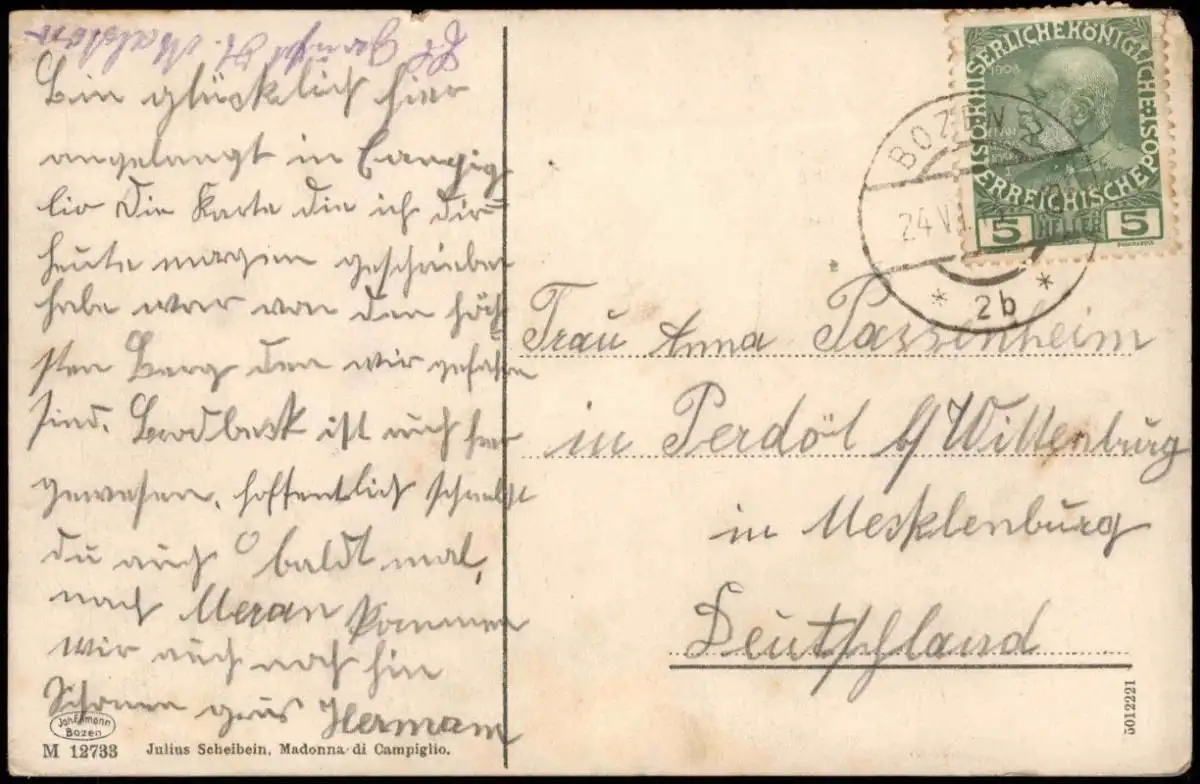 Bin glücklich hier
angelangt in Campig
lio Die Karte die ich dir
heute morgen geschrieben
habe war von den höch
sten Berg den wir gefahren
sind. Brodbeck ist auch hier
gewesen, hoffentlich schreibst
du auch baldt mal,
nach Meran kommen
wir auch noch hin
Schönen grus Hermann
Frau Anna Passenheim
in Perdöl b/Wittenburg
in Mecklenburg
Deutschland
KAISERLICHE KÖNIGLICHE ÖSTERREICHISCHE POST
1908
5 HELLER 5
BOZEN
24 V
* 2b *
Joh. F. Amonn
Bozen
M 12733 Julius Scheibein, Madonna di Campiglio.
5012221